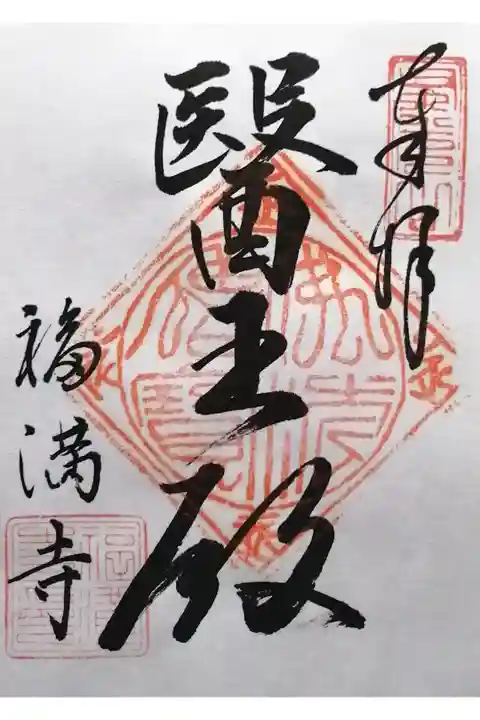 奉拝
醫王殿
福満寺